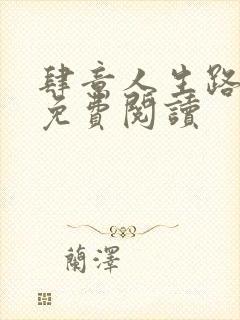 肆意人生路
免費閱讀
蘭澤